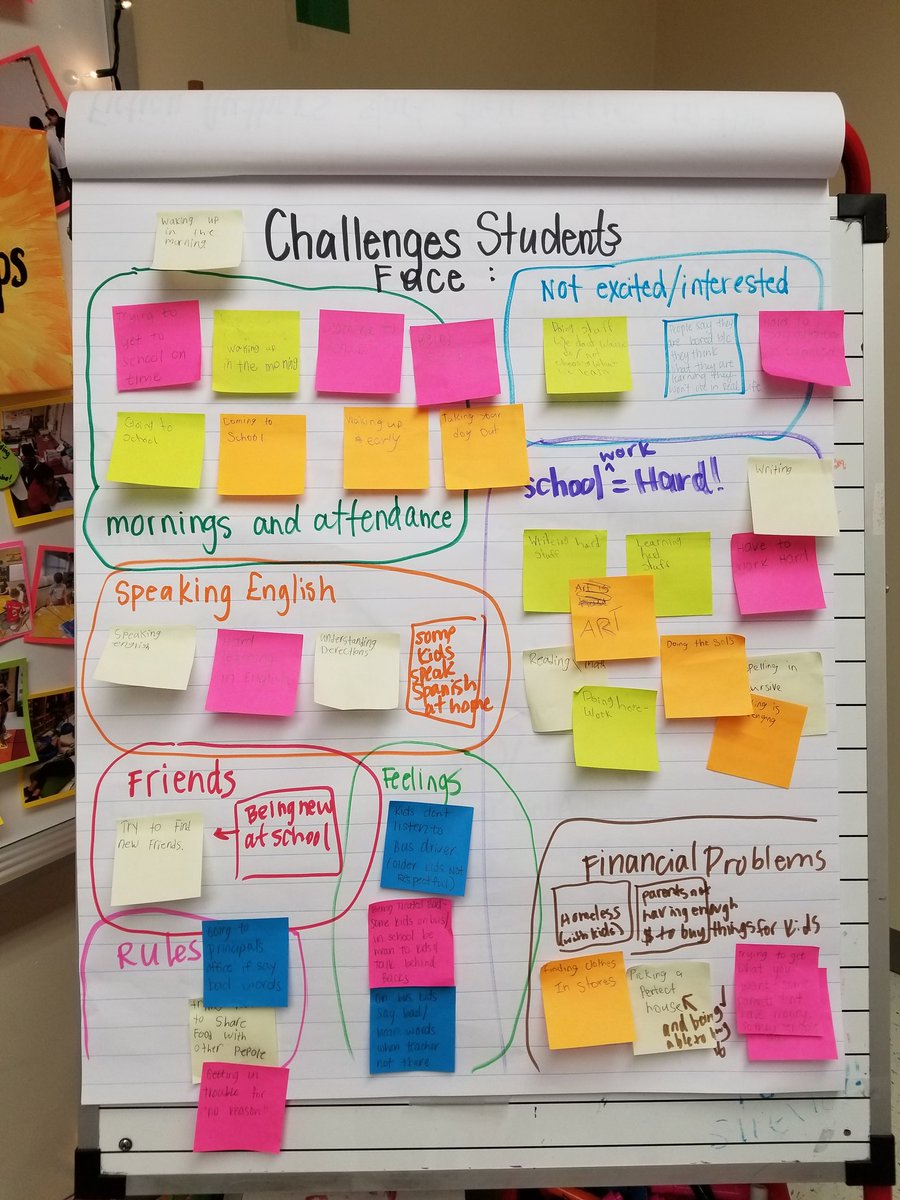 ps
Waking up
in the
morning
Challenges Students
Face :
Trying to
get to
school on
time
waking up
in the morning
Going to
School
Coming to
School
Waking up
early
Taking your
day out
mornings and attendance
Not excited/interested
Doing stuff
People say they
are bored b/c
they think
what they are
learning they
won't use in real life
school work = Hard!
Writing
Writeing hard
stuff
Learning
hard
stuff
Have to
work Hard
ART
Reading
math
Doing the
Doing home-
work
spelling in
cursive
Speaking English
Speaking
english
Hard
in English
understanding
Derections
some
kids
speak
spanish
at home
Friends
Try to find
new friends.
Being new
at school
Feelings
Kids don't
listen to
Bus driver
(older kids not
respectful)
Being treated bad-
Some kids on bus/
in school be
mean to kids/
talk behind
backs
On bus kids
say bad/
mean words
when teacher
not there
Rules
Going to
principals
office if say
bad words
to share
Food with
other Pepole
Getting in
trouble for
"no reason"
Financial Problems
Homeless
(with kids)
parents not
having enough
$ to buy things for kids
Finding clothes
In stores
Picking a
Perfect
house
and being
able to
Trying to get
what you
want